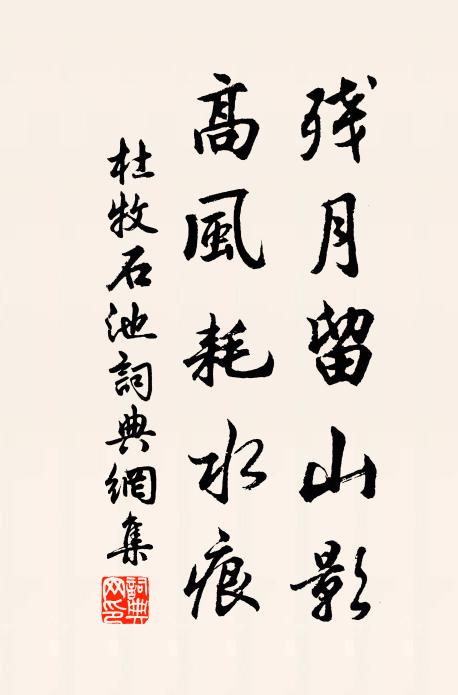 残月留山影
高風耗水痕
杜牧石池詞典網集
詞典网印